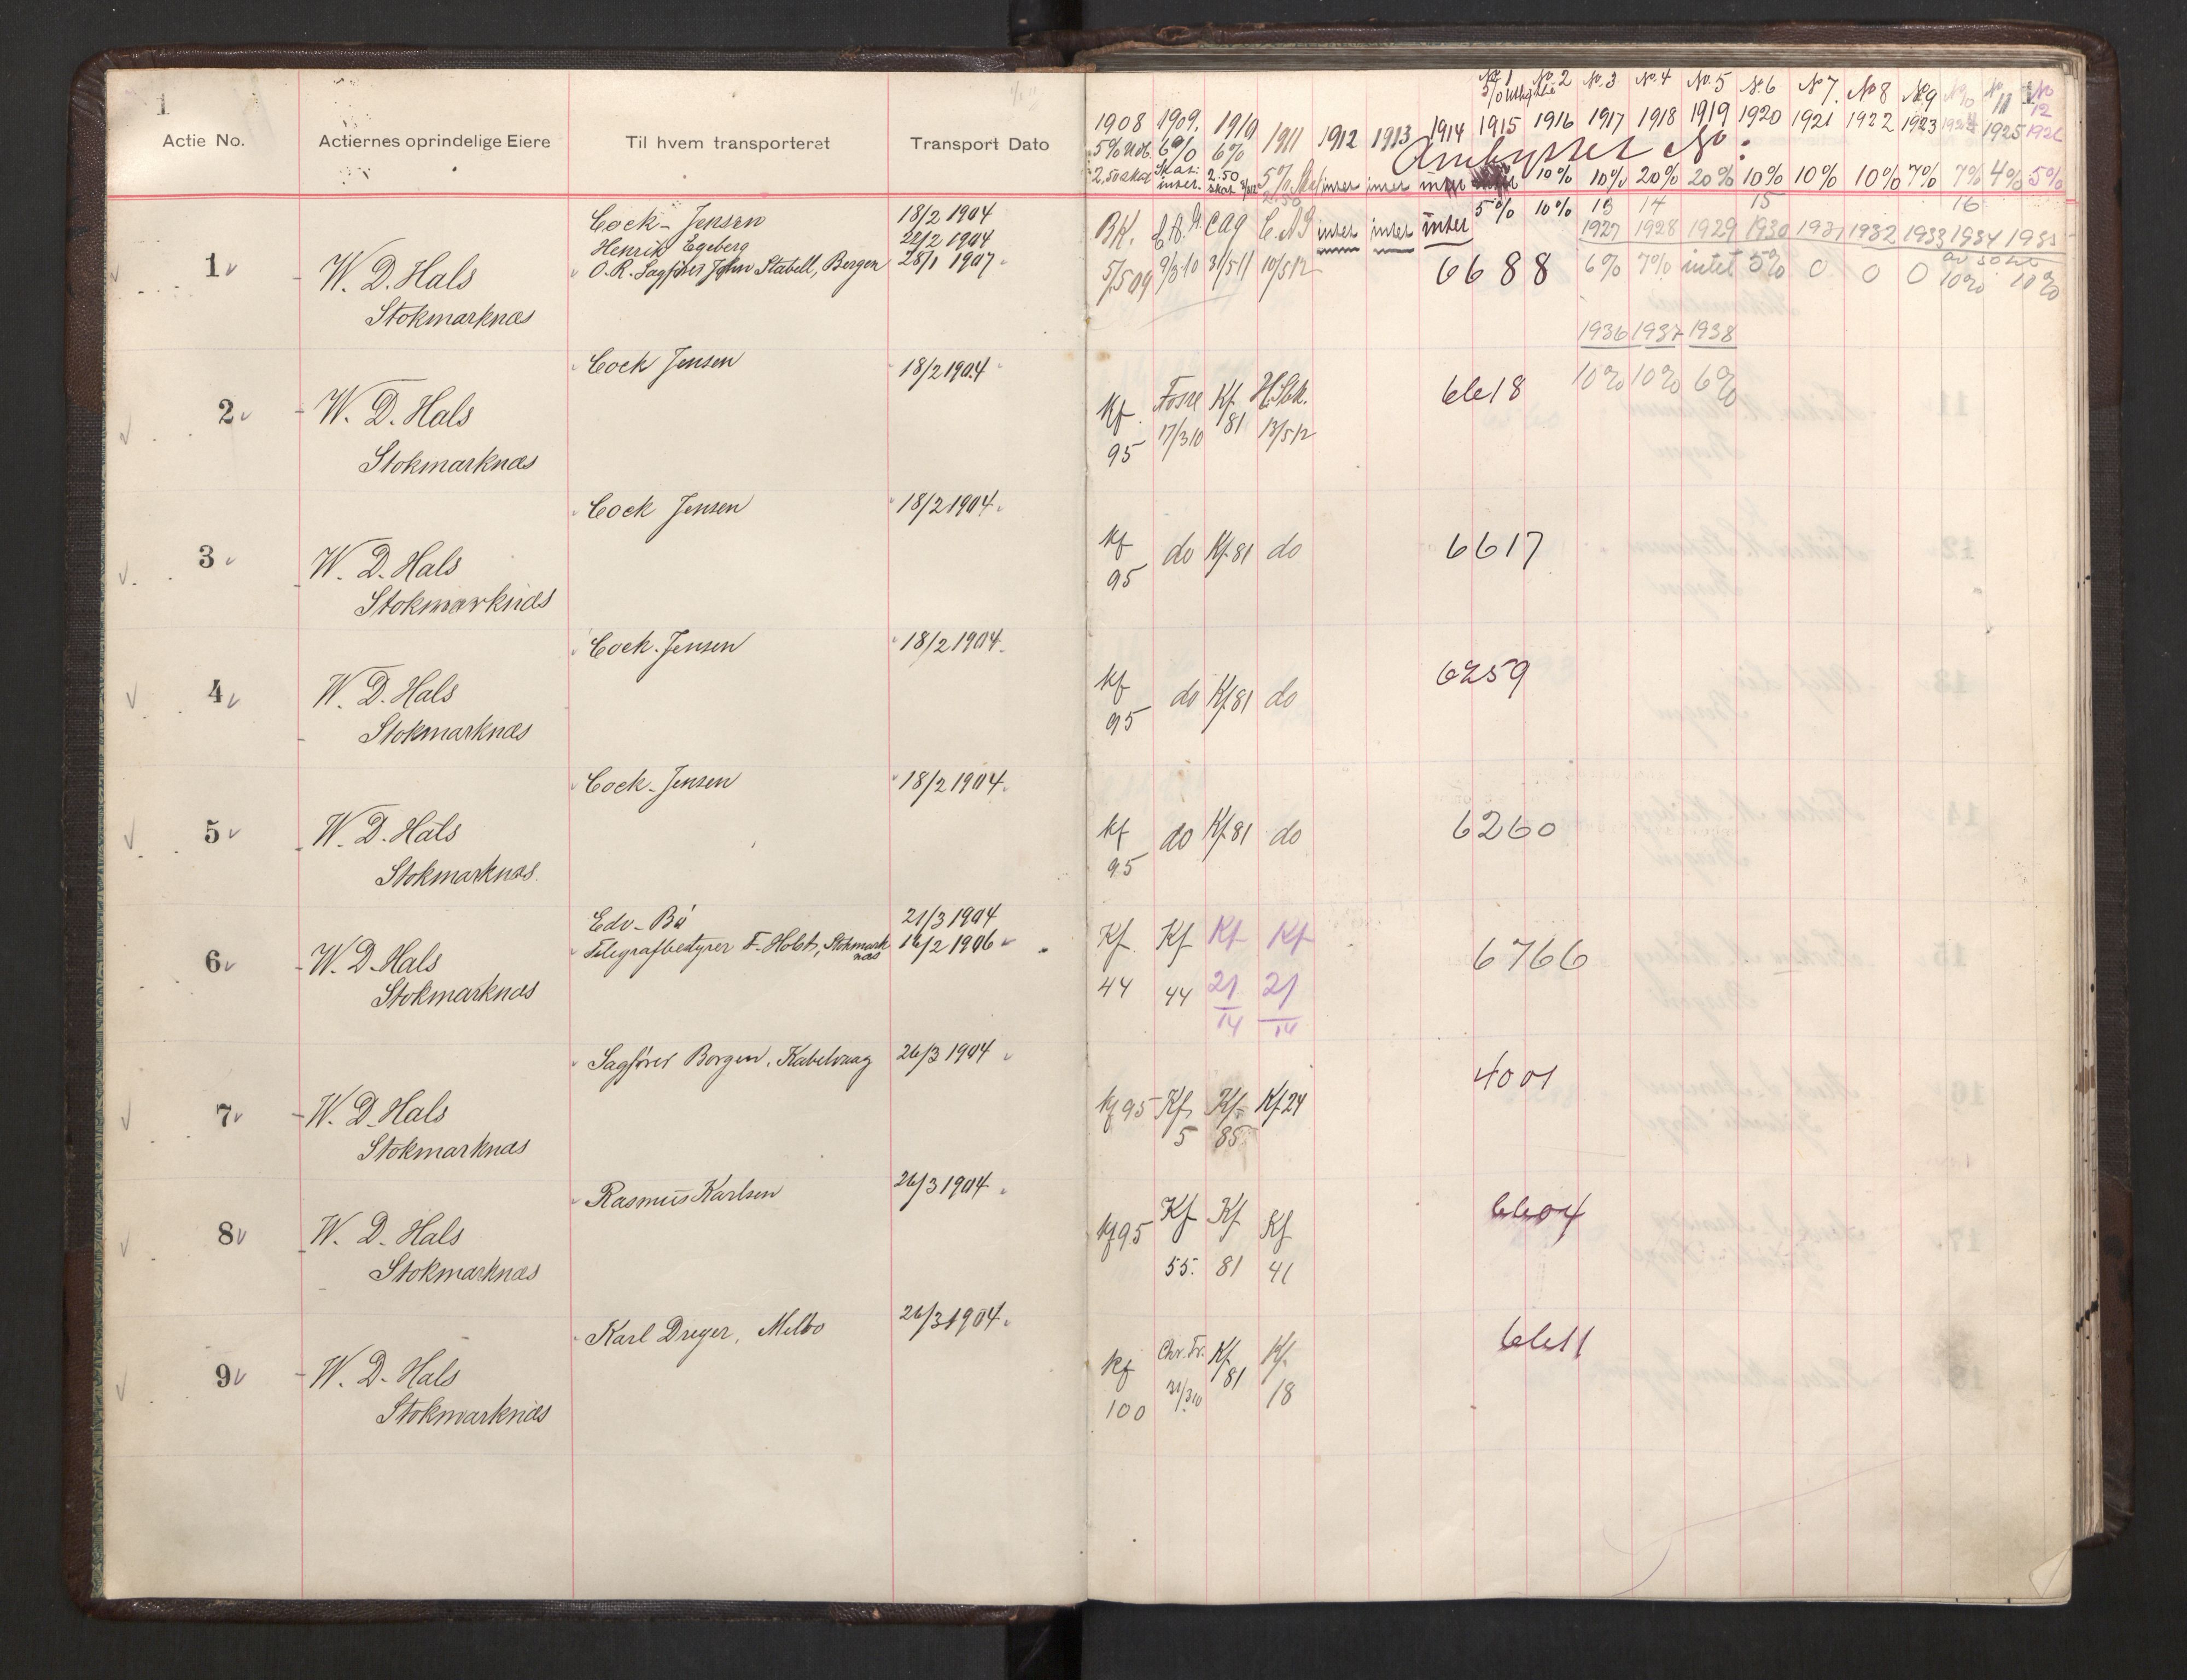 1
Actie No.
Actiernes oprindelige Eiere
Til hvem transporteret
Transport Dato
1
W. D. Hals
Stokmarknæs
Cock-Jensen
Henrik Egeberg
O.R. Sagfører John Stabell, Bergen
18/2 1904
22/2 1904
28/1 1907
2
W. D. Hals
Stokmarknæs
Cock Jensen
18/2 1904
3
W. D. Hals
Stokmarknæs
Cock Jensen
18/2 1904.
4
W. D. Hals
Stokmarknæs
Cock-Jensen
18/2 1904.
5
W. D. Hals
Stokmarknæs.
Cock-Jensen
18/2 1904.
6
W. D. Hals
Stokmarknæs
Edv. Bø
Telegrafbestyrer F. Holst, Stokmark
næs
21/3 1904
16/2 1906
7
W. D. Hals
Stokmarknæs
Sagfører Borgen, Kabelvaag
26/3 1904
8
W. D. Hals
Stokmarknæs
Rasmus Karlsen
26/3 1904
9
W. D. Hals
Stokmarknæs
Karl Dreyer, Melbo
26/3 1904.
No. 1 No. 2 No. 3 No. 4 No. 5 No. 6 No 7. No 8 No. 9 No 10 No 11 No 12
1
1908 1909. 1910 1911 1912 1913 1914 1915 1916 1917 1918 1919 1920 1921 1922 1923 1924 1925 1926
5% 6% 6%
Ombyttet No:
2.50
5% intet intet intet 10% 10% 20% 20% 10% 10% 10% 7% 7% 4% 5%
5% 10% 13 14 15 16
BK. CAG intet intet intet
1927 1928 1929 1930 1931 1932 1933 1934 1935
5/5 09 9/3 10 31/5 11 10/5 12
6688
6% 7% intet 5% 0 0 0 10% 10%
1936 1937 1938
10% 10% 6%
Kf. Fosse Kf. H.Stk.
95 17/3 10 81 13/5 12
6618
Kf do Kf. 81 do
95
6617
Kf do Kf. 81 do
95
6259
Kf do Kf. 81 do
95
6260
Kf. Kf Kf Kf
44 44 21/14 21/14
6766
Kf 95 Kf. Kf. Kf. 24
5 85
4001
Kf. 95 Kf Kf Kf
55. 81 41
6604
Kf Chr. Fr. Kf. Kf.
100 31/3 10 81 18
6611